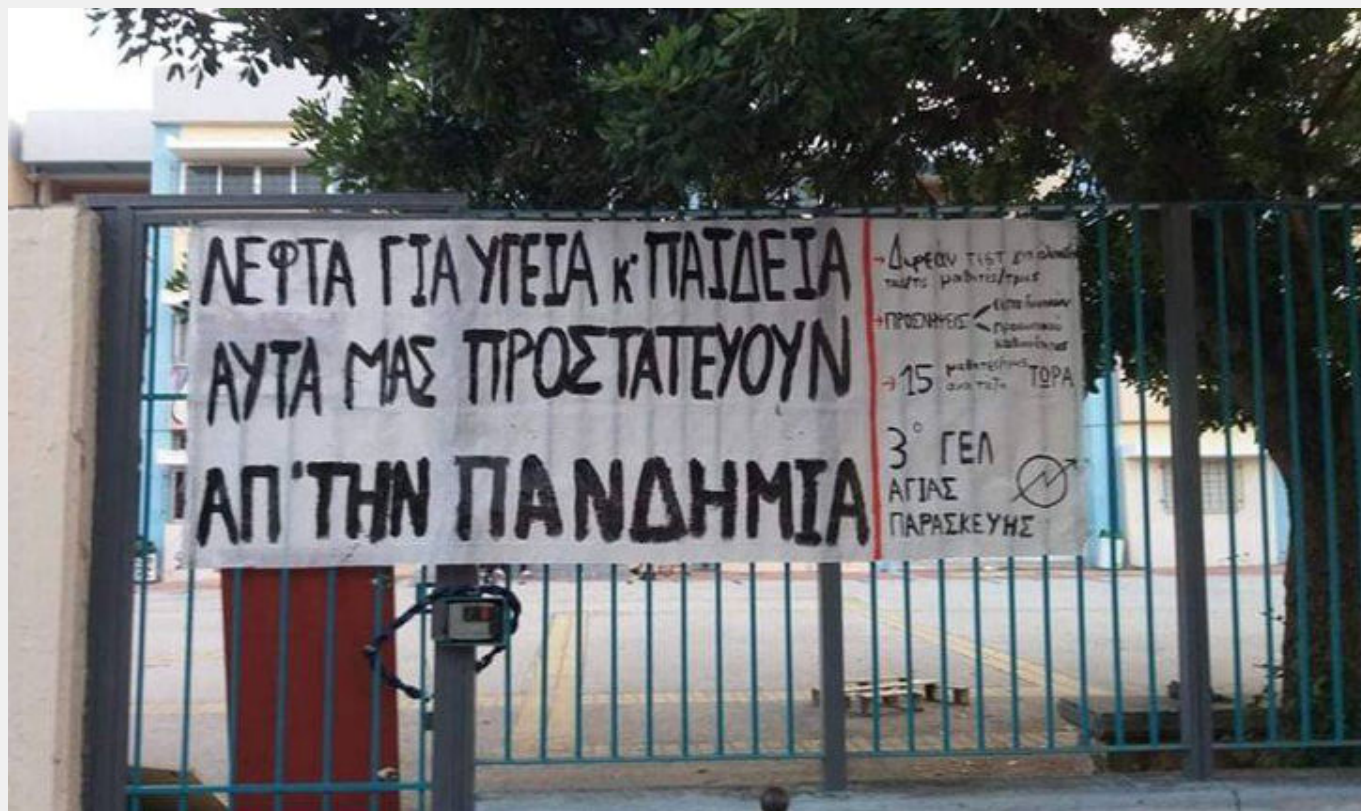 ΛΕΦΤΑ ΓΙΑ ΥΓΕΙΑ κ' ΠΑΙΔΕΙΑ
ΑΥΤΑ ΜΑΣ ΠΡΟΣΤΑΤΕΥΟΥΝ
ΑΠ' ΤΗΝ ΠΑΝΔΗΜΙΑ
→ Δωρεάν TEST σε
μαθητές/τριες
→ ΠΡΟΣΛΗΨΕΙΣ
προσωπικού
→ 15 μαθητές/τριες
ανά τάξη ΤΩΡΑ
3° ΓΕΛ
ΑΓΙΑΣ
ΠΑΡΑΣΚΕΥΗΣ